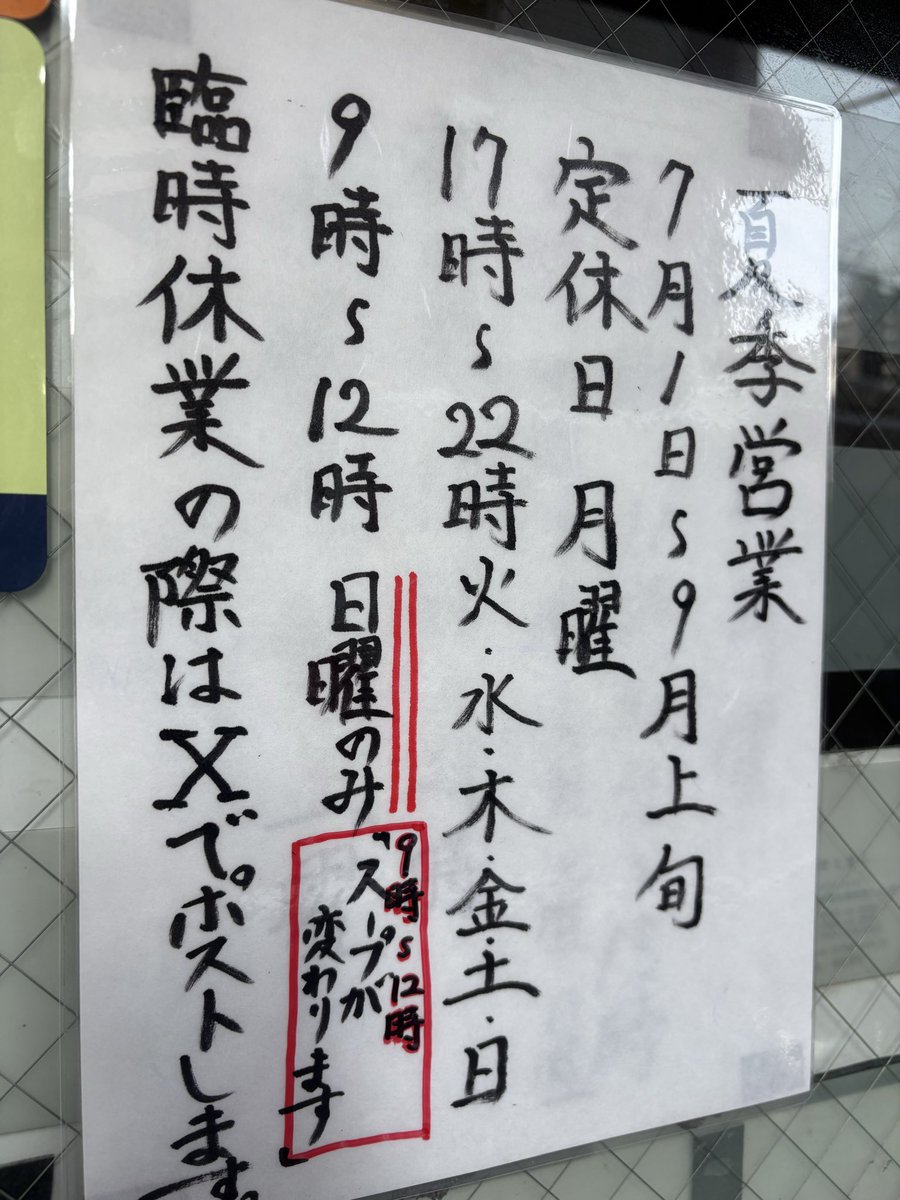 夏季営業
7月1日~9月上旬
定休日 月曜
17時~22時火・水・木・金・土・日
9時~12時 日曜のみ
9時~12時
「スープが
変わります」
臨時休業の際はXでポストします。